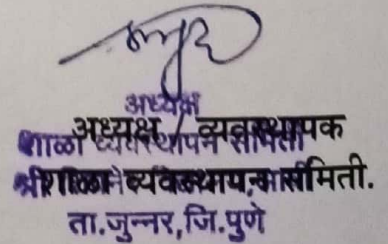 अध्यक्ष
अध्यक्ष / व्यवस्थापक
शाळा व्यवस्थापन समिती
शाळा व्यवस्थापन समिती.
ता.जुन्नर,जि.पुणे